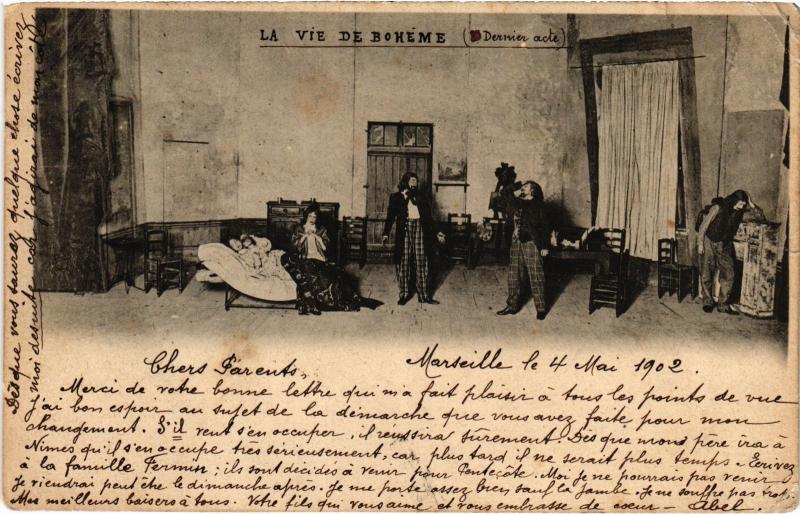 LA VIE DE BOHÈME (Dernier acte)
Chers Parents, Marseille le 4 Mai 1902.
Merci de votre bonne lettre qui m'a fait plaisir à tous les points de vue
J'ai bon espoir au sujet de la démarche que vous avez faite pour mon
changement. S'il veut s'en occuper, il réussira sûrement. Dès que mon père ira à
Nimes qu'il s'en occupe très sérieusement, car plus tard il ne serait plus temps. Ecrivez
à la famille Permin ; ils sont décidés à venir pour Pentecôte. Moi je ne pourrais pas venir
Je viendrai peut être le dimanche après. Je me porte assez bien sauf la jambe. Je ne souffre pas trop.
Mes meilleurs baisers à tous. Votre fils qui vous aime et vous embrasse de cœur - Abel.
Dès que vous saurez quelque chose écrivez
moi de suite car j'agirai de mon côté